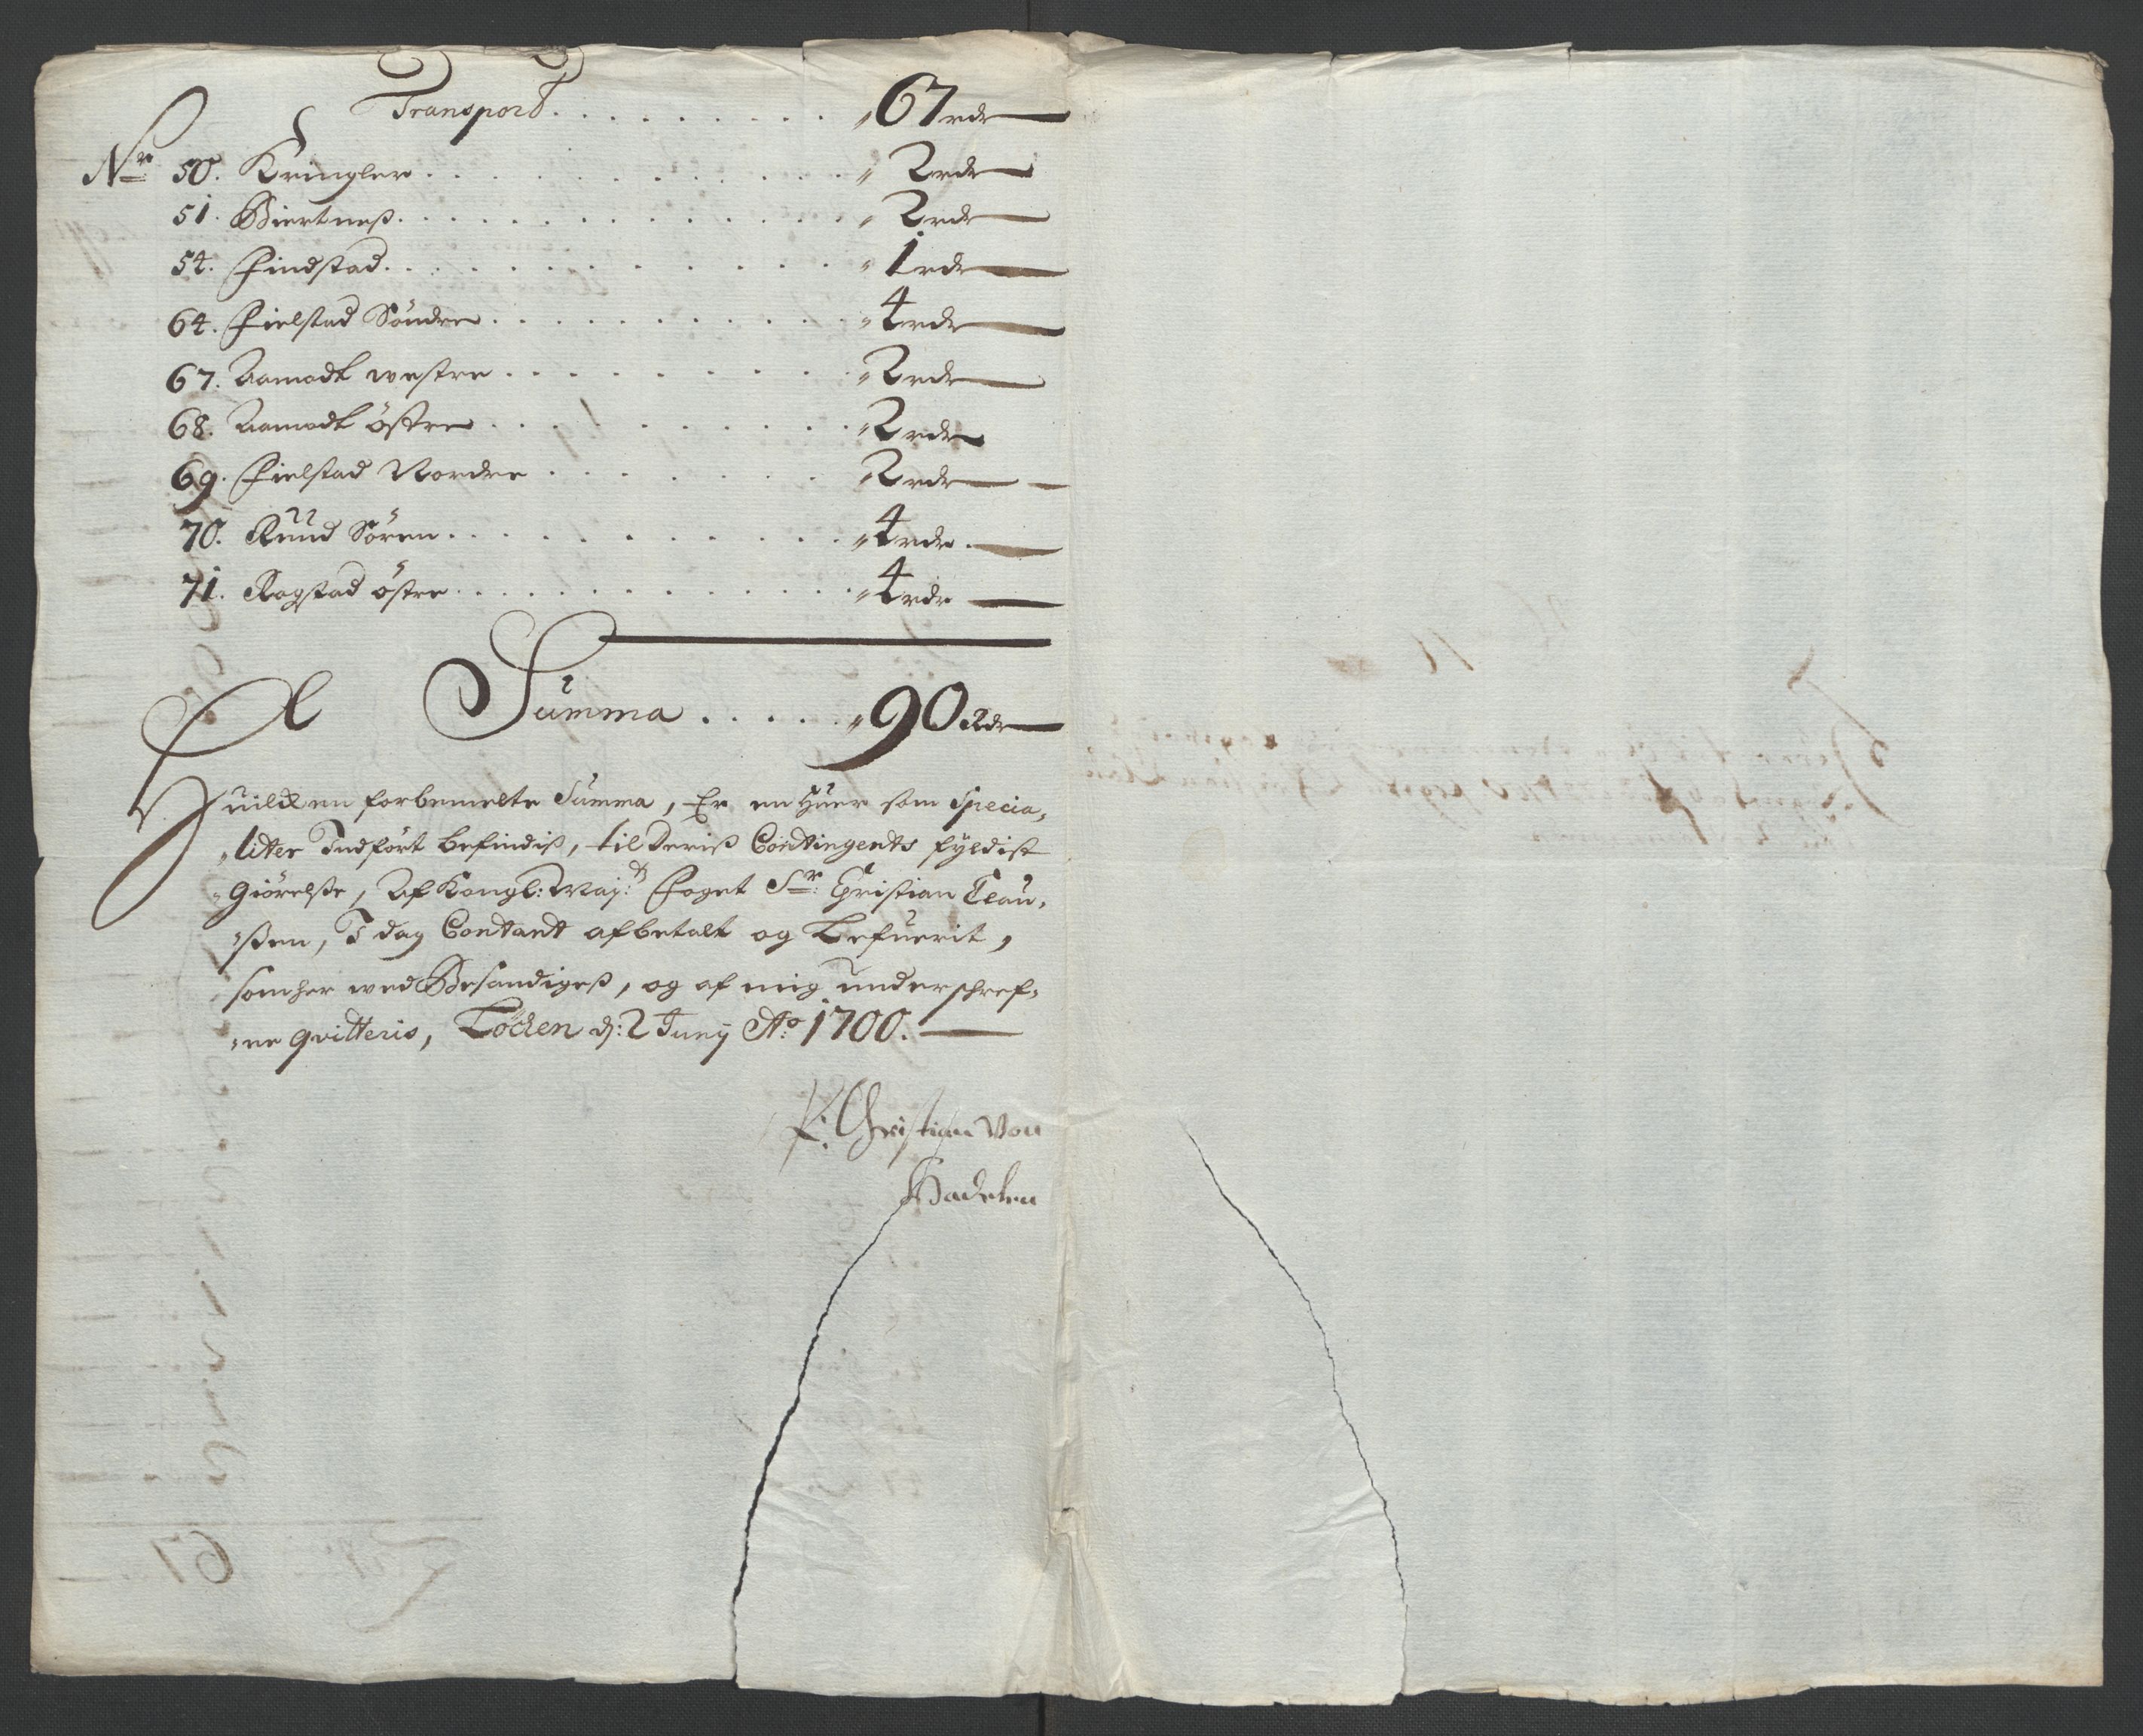 Transport . . . . . . . . . . 67 rdr
Nr 50. Kringler . . . . . . . . . . 2 rdr
51. Biertneß . . . . . . . . . . 2 rdr
54. Findstad . . . . . . . . . . 1 rdr
64. Fielstad Söndre . . . . . . . . . . 4 rdr
67. Aamodt westre . . . . . . . . . 2 rdr
68. Aamodt östre . . . . . . . . . 2 rdr
69. Fielstad Nordre . . . . . . . 2 rdr
70. Ruud Sören . . . . . . . . . . 4 rdr
71. Rogstad östre . . . . . . . . . . 4 rdr
Summa . . . . . 90 Rdr
Huilcken forbemelte Summa, Er en Huer som Specia„
„liter Indfört befindis, til deris Contingents fyldist
Giörelse, Af Kongl: Maj:ts Foget Sr: Christian Clau„
„ßen, I dag Contant afbetalt og Lefuerit,
som her wed Bestandiges, og af mig underschref„
„ne qvitteris, Löcken d: 2 Junij Ao 1700.
P: Christian Von
Hadelen